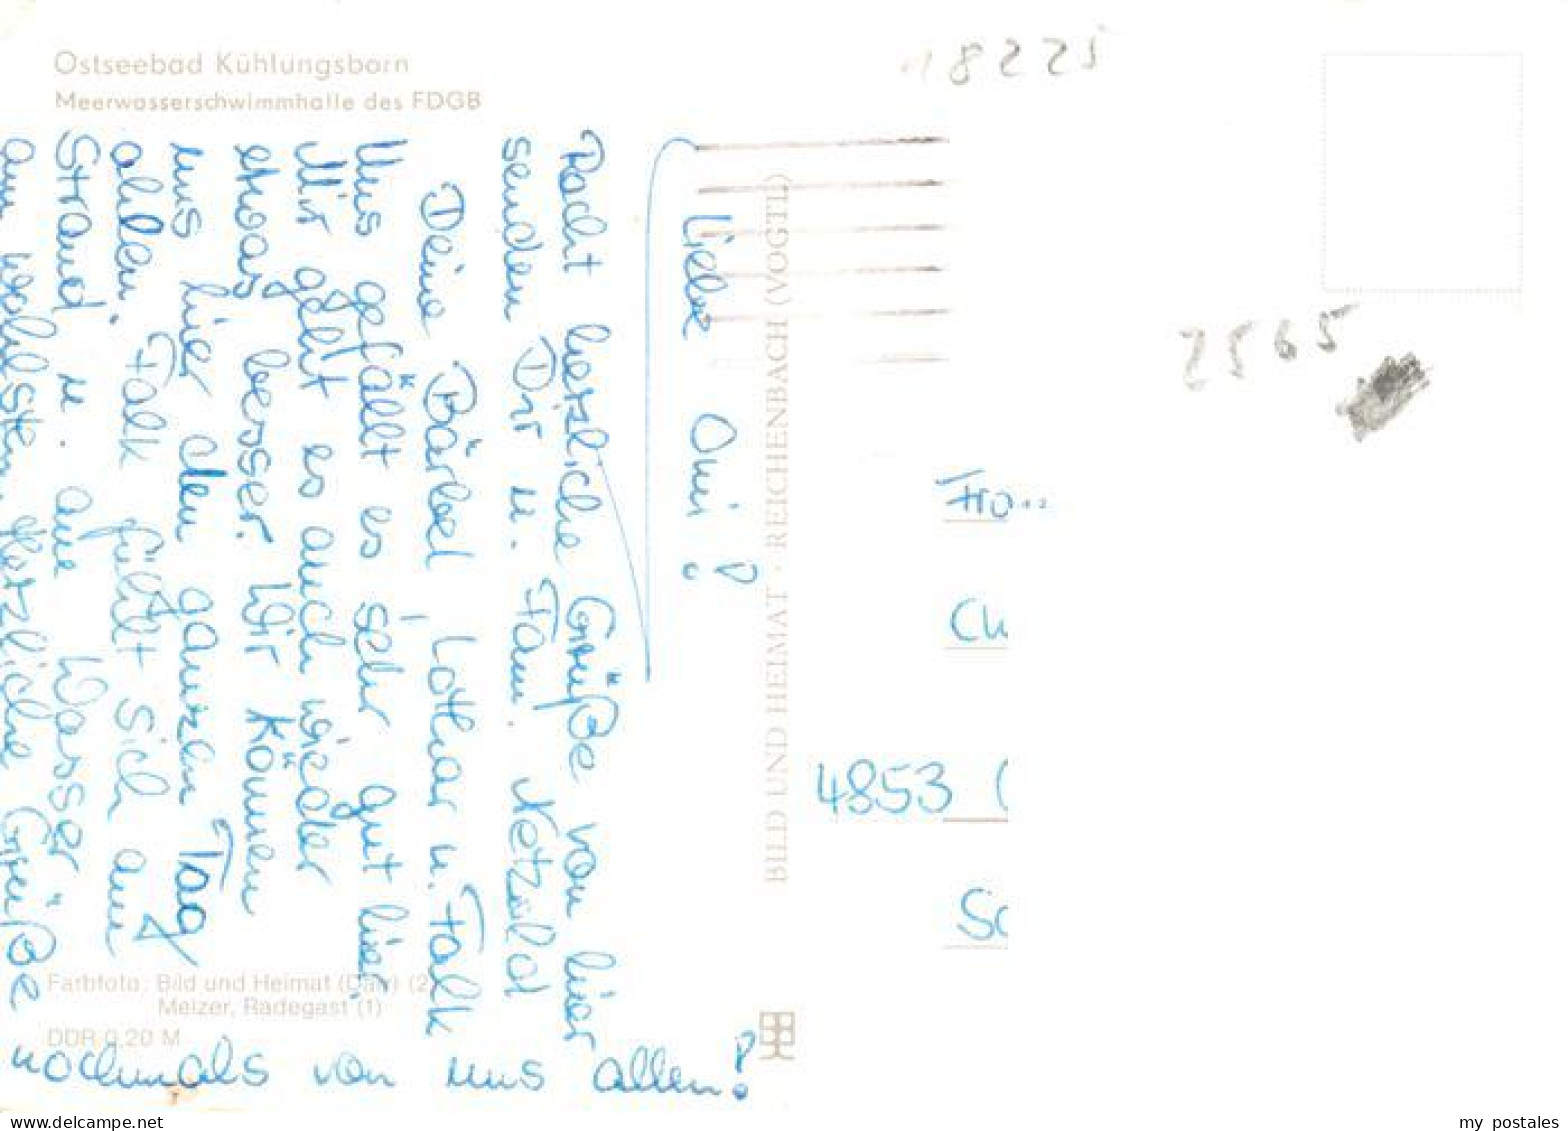 Ostseebad Kühlungsborn
Meerwasserschwimmhalle des FDGB
18225
Liebe Omi!
Recht herzliche Grüße von hier
senden Dir u. Fam. Netzold
Deine Bärbel, Lothar u. Falk
Uns gefällt es sehr gut hier.
Mir geht es auch wieder
etwas besser. Wir können
uns hier den ganzen Tag
aalen. Falk fühlt sich am
Strand u. am Wasser
am wohlsten. Herzliche Grüße
nochmals von uns allen!
BILD UND HEIMAT · REICHENBACH (VOGTL)
2565
Fra...
4853
Farbfoto: Bild und Heimat (Darr) (2)
Melzer, Radegast (1)
DDR 0,20 M
my postales